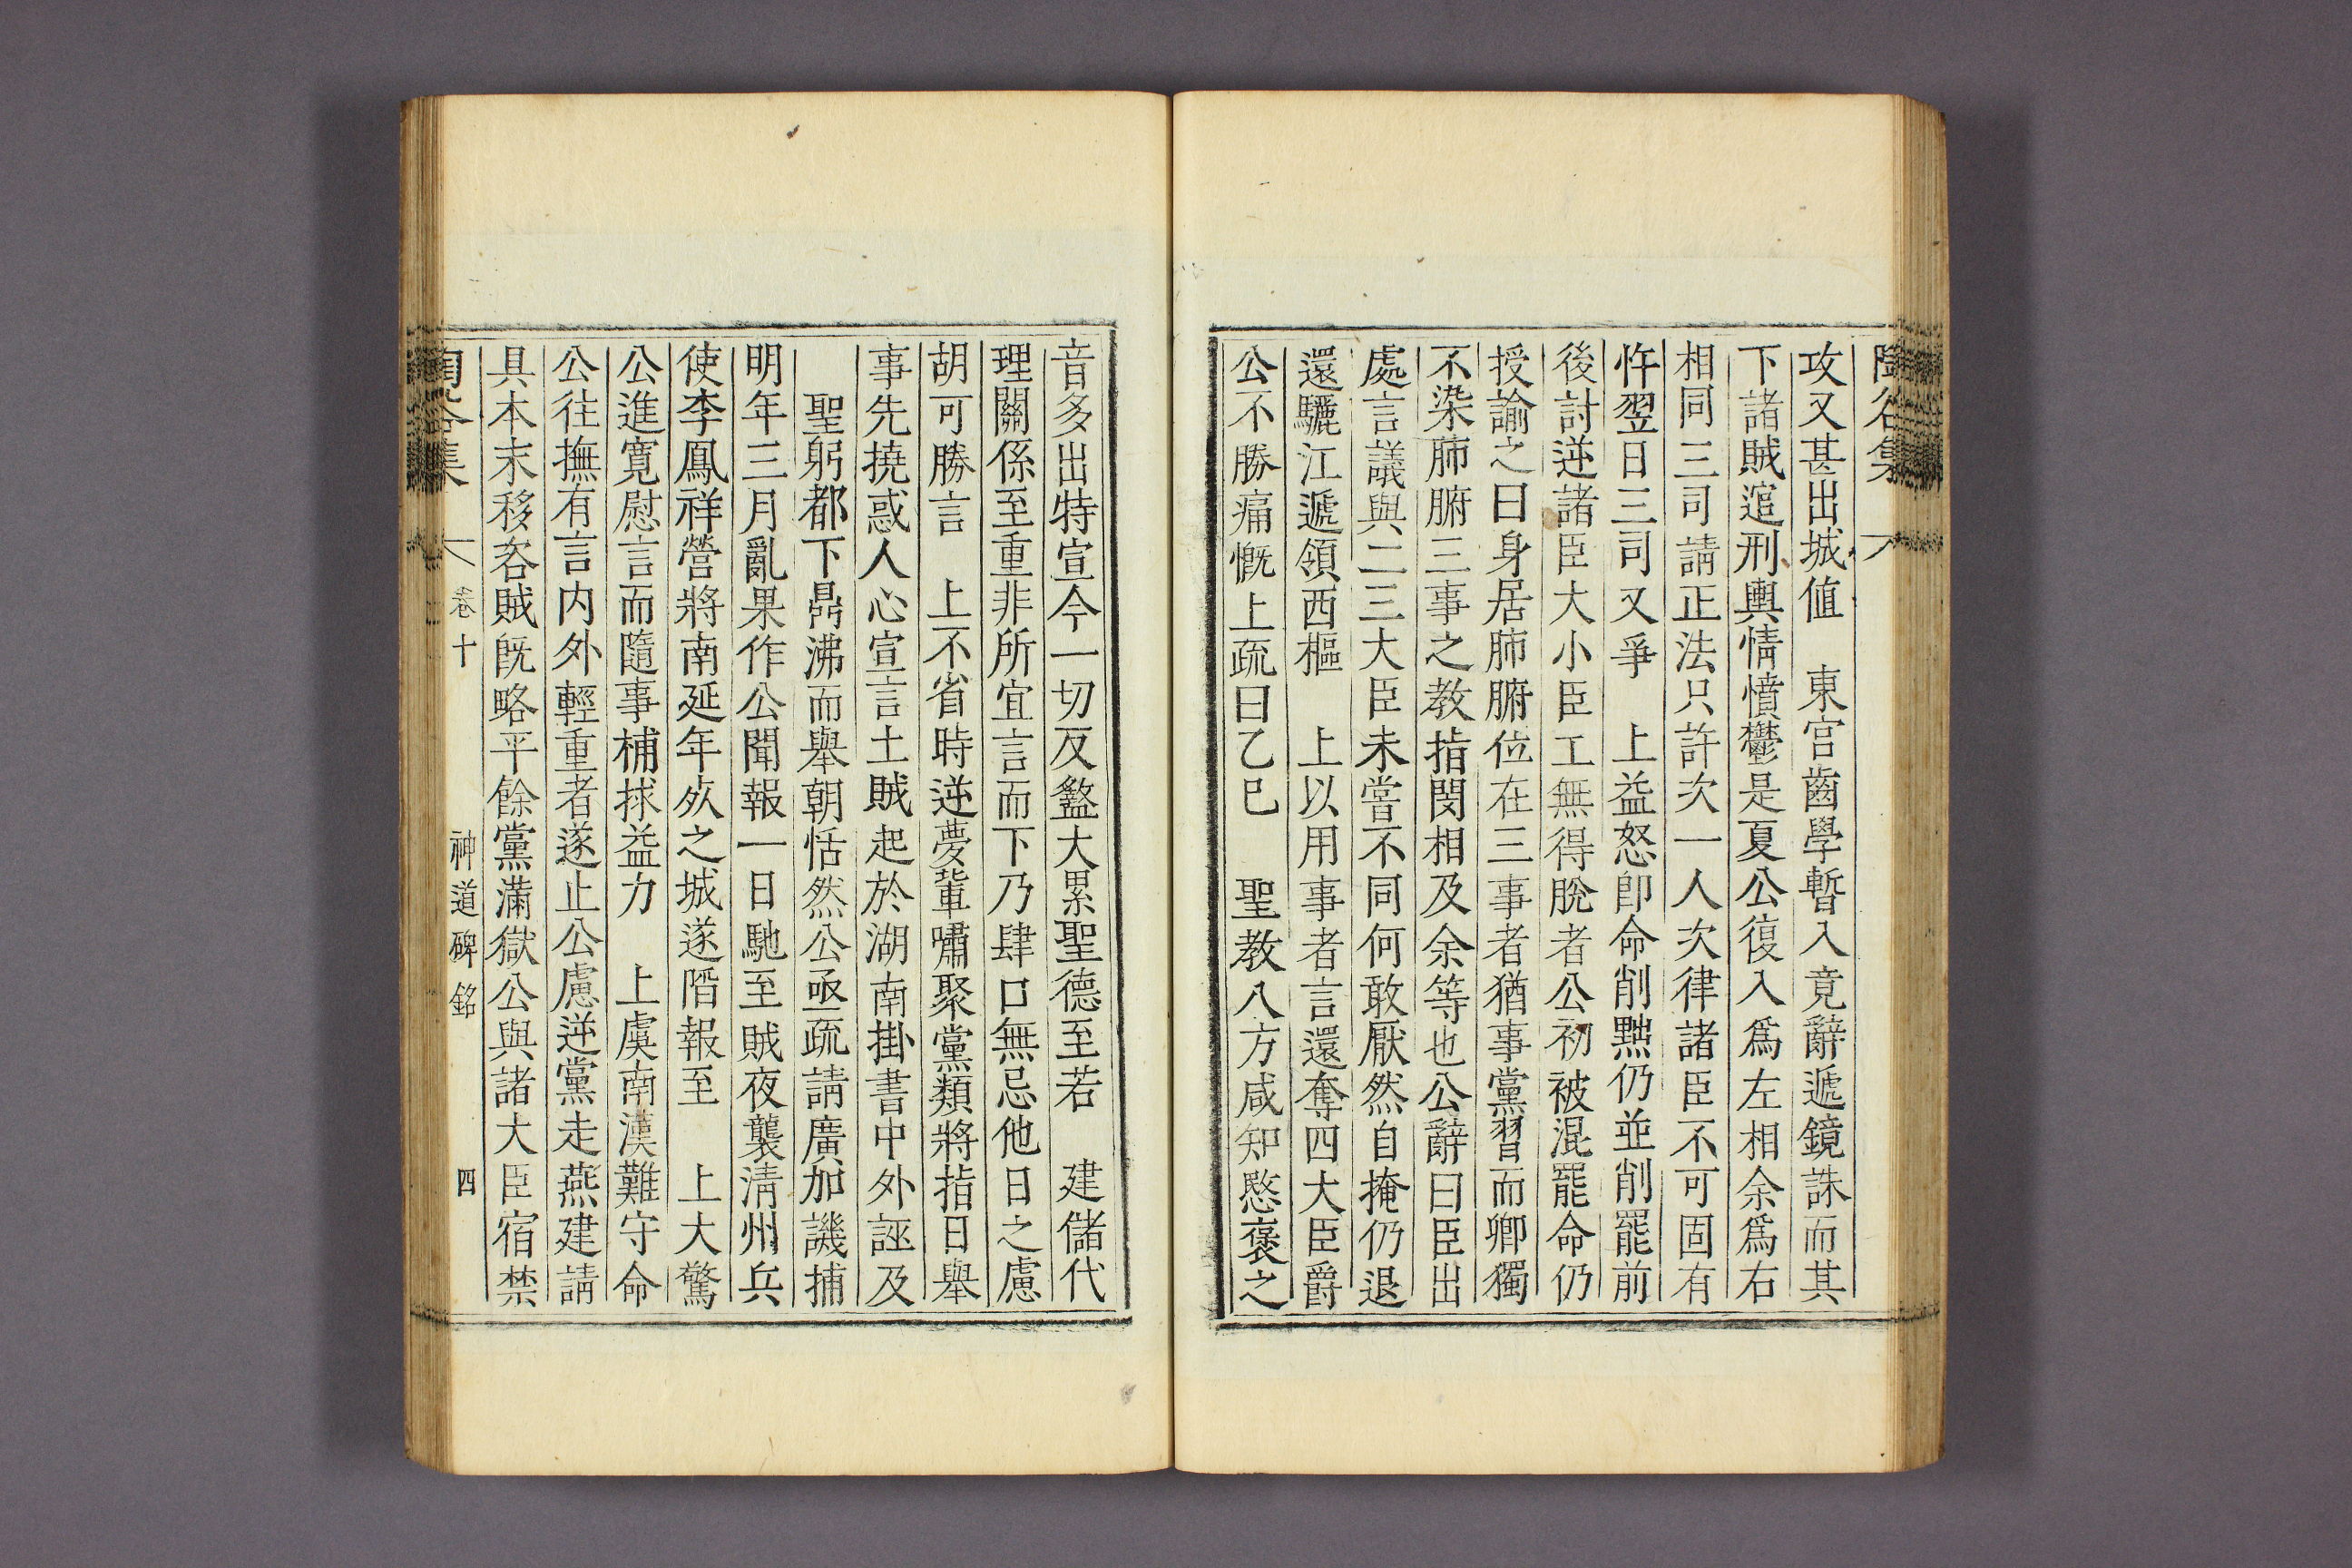 陶谷集
攻又甚出城値　東宮齒學暫入竟辭遞鏡誅而其
下諸賊逭刑輿情憤鬱是夏公復入爲左相余爲右
相同三司請正法只許次一人次律諸臣不可固有
忤翌日三司又爭　上益怒卽命削黜仍並削罷前
後討逆諸臣大小臣工無得脫者公初被混罷命仍
授諭之曰身居肺腑位在三事者猶事黨習而卿獨
不染肺腑三事之教指閔相及余等也公辭曰臣出
處言議與二三大臣未嘗不同何敢厭然自掩仍退
還驪江遞領西樞　上以用事者言還奪四大臣爵
公不勝痛慨上疏曰乙巳　聖教八方咸知愍褒之
音多出特宣今一切反盭大累聖德至若　建儲代
理關係至重非所宜言而下乃肆口無忌他日之慮
胡可勝言　上不省時逆夢輩嘯聚黨類將指日舉
事先撓惑人心宣言土賊起於湖南掛書中外誣及
聖躬都下鼎沸而舉朝恬然公亟疏請廣加譏捕
明年三月亂果作公聞報一日馳至賊夜襲淸州兵
使李鳳祥營將南延年死之城遂陷報至　上大驚
公進寬慰言而隨事補捄益力　上虞南漢難守命
公往撫有言内外輕重者遂止公慮逆黨走燕建請
具本末移咨賊旣略平餘黨滿獄公與諸大臣宿禁
陶谷集　卷十　神道碑銘　四